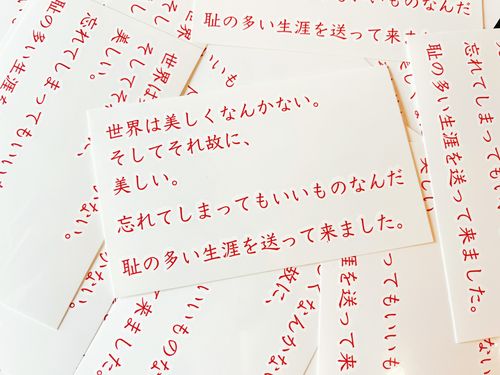 世界は美しくなんかない。
そしてそれ故に、
美しい。
忘れてしまってもいいものなんだ
恥の多い生涯を送って来ました。
忘れてしまってもいいものなんだ
恥の多い生涯を送って来ました。
忘れてしまってもいい
恥の多い生涯を送って来ました。
世界は
そしてそ
美しい。
忘れてしまってもいい
恥の多い生涯を